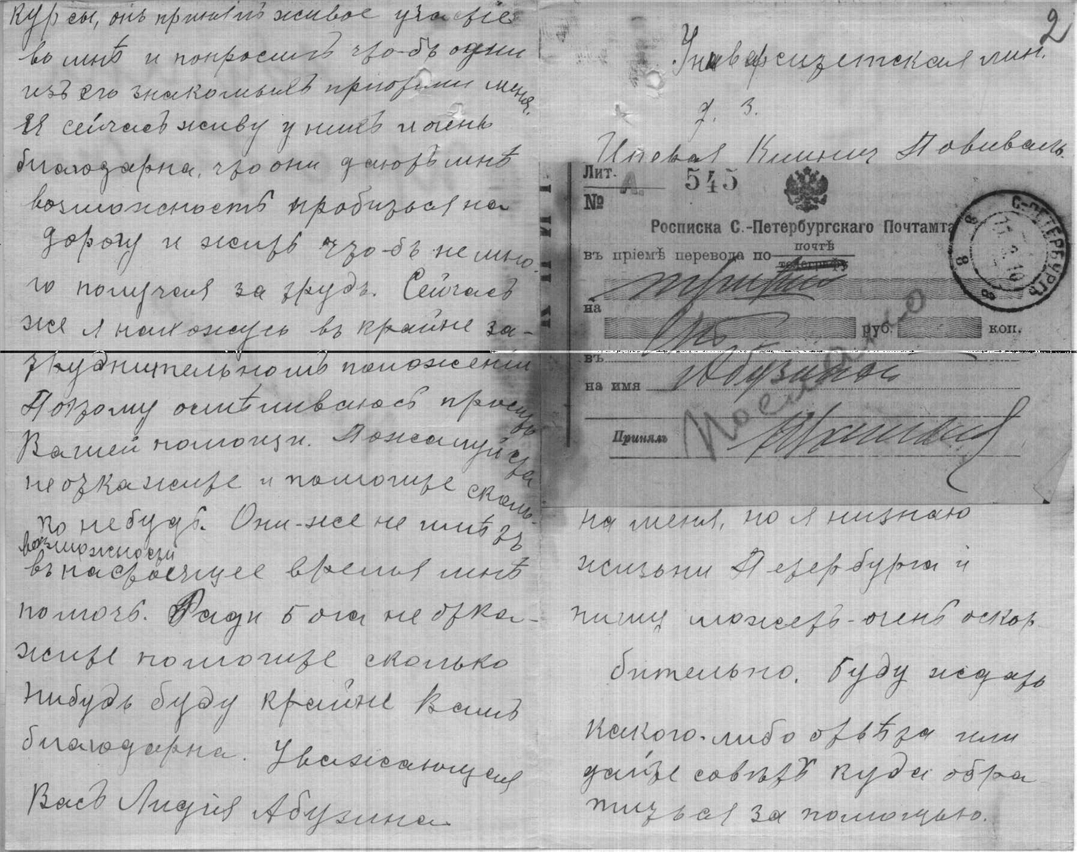 курсы, онъ принялъ живое участіе
во мнѣ и попросилъ что-бъ одни
изъ его знакомыхъ пріютили меня.
Я сейчасъ живу у нихъ и очень
благодарна, что они даютъ мнѣ
возможность пробиться на
дорогу и жить что-бъ немно-
го получая за трудъ. Сейчасъ
же я нахожусь въ крайне за-
труднительномъ положеніи
Поэтому осмѣливаюсь просить
Вашей помощи. Пожалуйста
не откажите и помогите сколь-
ко нибудь. Они-же не имѣютъ
возможности
въ настоящее время мнѣ
помочь. Ради Бога не отка-
жите помогите сколько
нибудь буду крайне Вамъ
благодарна. Уважающая
Васъ Лидія Абузина
2
Университетская лин.
д. 3.
Клинич Повиваль
Лит. А
545
№
Росписка С.-Петербургскаго Почтамта
въ пріемѣ перевода по почтѣ
телеграфу
на
руб. коп.
въ
на имя Абузиной
Принялъ
Послано
С-ПЕТЕРБУРГЪ
8 8 8
на меня, но я низнаю
жизни Петербурга и
пишу можетъ-очень оскор
бительно. Буду ждать
какого-либо отвѣта или
дайте совѣтъ куда обра
титься за помощью.